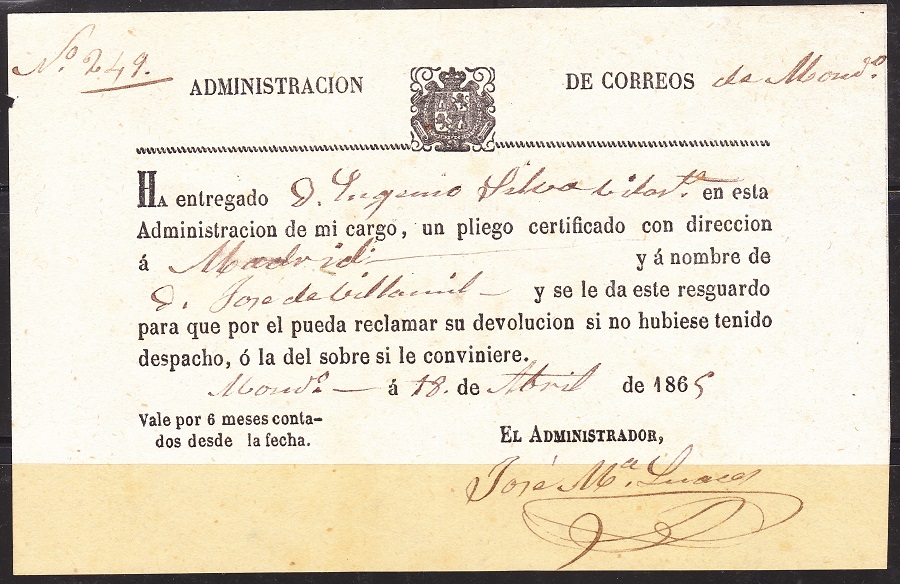 Nº 249.
ADMINISTRACION DE CORREOS de Mondº
HA entregado D. Eugenio Silva en esta
Administracion de mi cargo, un pliego certificado con direccion
á Madrid y á nombre de
D. Jose de Villamil y se le da este resguardo
para que por el pueda reclamar su devolucion si no hubiese tenido
despacho, ó la del sobre si le conviniere.
Mondº á 18. de Abril de 1865
Vale por 6 meses conta-
dos desde la fecha.
EL ADMINISTRADOR,
José Mª. Luaces